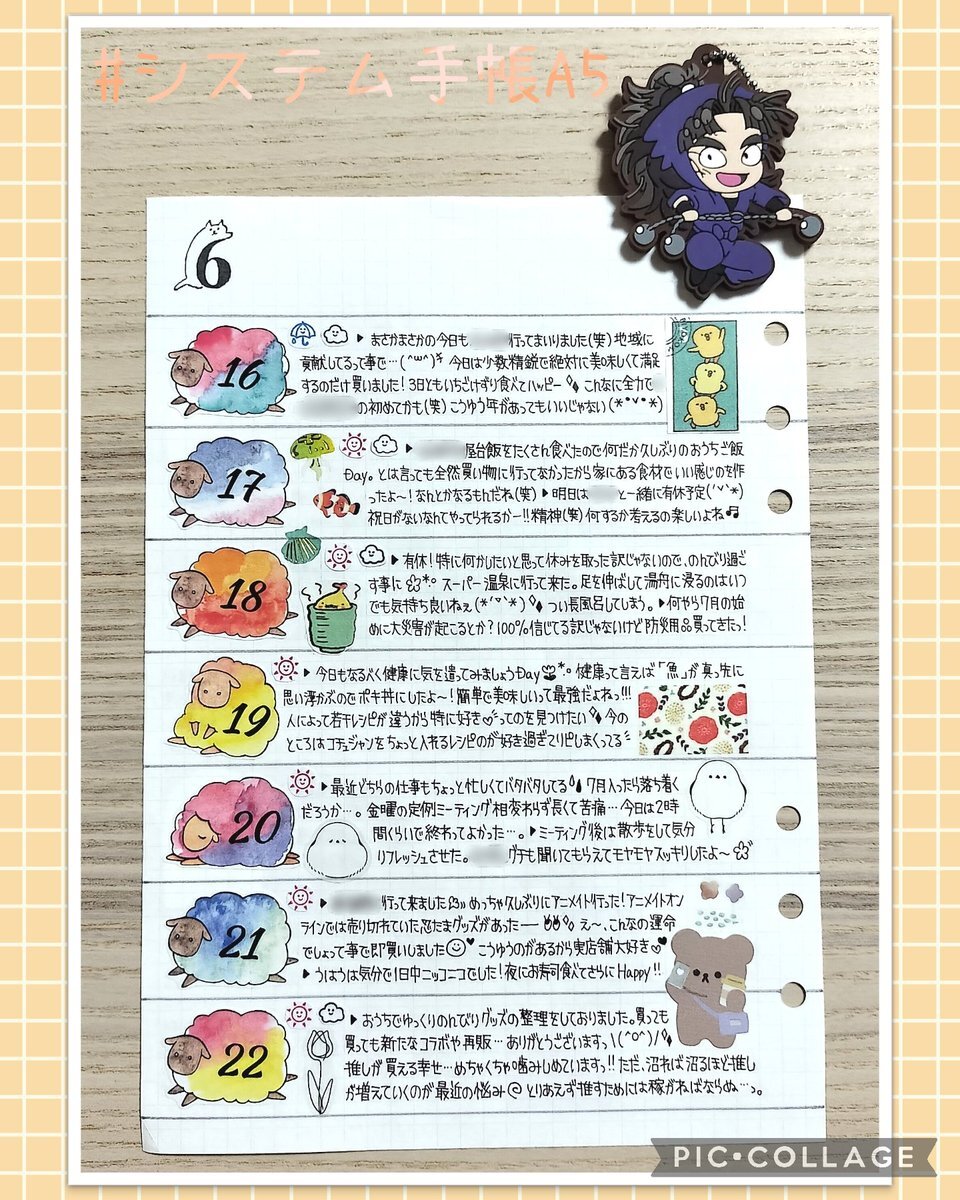 #システム手帳A5
6
16
▶まさかまさかの今日も 行ってまいりました(笑)地域に
貢献してるって事で…(^w^)
今日は少数精鋭で絶対に美味しくて満足
するのだけ買いました!3日ともいちごけずり食べてハッピー こんなに全力で
の初めてかも(笑)こうゆう年があってもいいじゃない(*•ᵕ•*)
17
▶ 屋台飯をたくさん食べたので何だか久しぶりのおうちご飯
Day。とは言っても全然買い物に行ってなかったから家にある食材でいい感じのを作
ったよ〜!なんとかなるもんだね(笑)▶明日は と一緒に有休予定('ᵕ'*)
祝日がないなんてやってられるかー!!精神(笑)何するか考えるの楽しいよね♫
18
▶有休!特に何かしたいと思って休みを取った訳じゃないので、のんびり過ご
す事に スーパー温泉に行って来た。足を伸ばして湯舟に浸るのはいつ
でも気持ち良いねぇ(*'▽'*) つい長風呂してしまう。▶何やら7月の始
めに大災害が起こるとか?100%信じてる訳じゃないけど防災用品買ってきたっ!
19
▶今日もなるべく健康に気を遣ってみましょうDay 健康って言えば「魚」が真っ先に
思い浮かぶのでポキ丼にしたよ〜!簡単で美味しいって最強だよねっ!!!
人によって若干レシピが違うから特に好き♡ってのを見つけたい 今の
ところはコチュジャンをちょっと入れるレシピのが好き過ぎてリピしまくってる
20
▶最近どちらの仕事もちょっと忙しくてバタバタしてる 7月入ったら落ち着く
だろうか…。金曜の定例ミーティング相変わらず長くて苦痛…今日は2時
間くらいで終わってよかった…。▶ミーティング後は散歩をして気分
リフレッシュさせた。 グチも聞いてもらえてモヤモヤスッキリしたよ〜
21
▶ 行って来ました めっちゃ久しぶりにアニメイト行った!アニメイトオン
ラインでは売り切れていた忍たまグッズがあったーー え〜、こんなの運命
でしょって事で即買いしました こうゆうのがあるから実店舗大好き
▶うはうは気分で1日中ニッコニコでした!夜にお寿司食べてさらにHappy!!
22
▶おうちでゆっくりのんびりグッズの整理をしておりました。買っても
買っても新たなコラボや再販…ありがとうございます、\(^o^)/
推しが買える幸せ…めちゃくちゃ噛みしめています。!!ただ、沼れば沼るほど推し
が増えていくのが最近の悩み@とりあえず推すためには稼がねばならぬ…っ。
PIC•COLLAGE